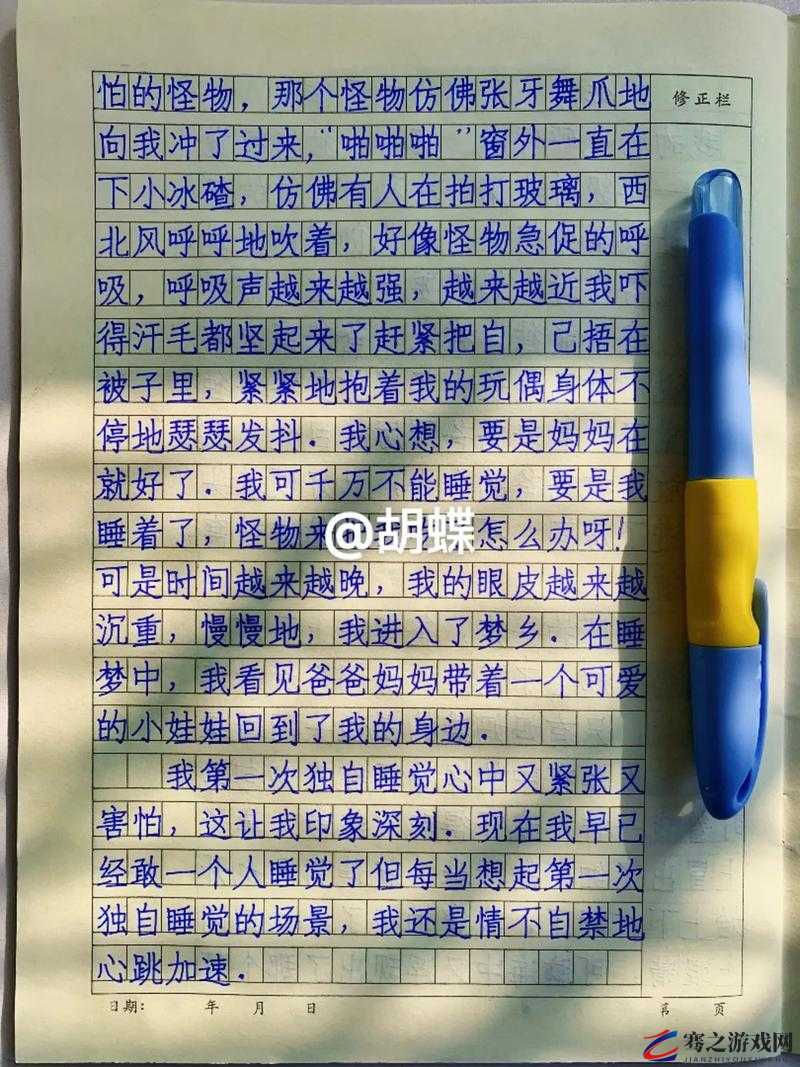 怕的怪物，那个怪物仿佛张牙舞爪地
修正栏
向我冲了过来，“啪啪啪”窗外一直在
下小冰碴，仿佛有人在拍打玻璃，西
北风呼呼地吹着，好像怪物急促的呼
吸，呼吸声越来越强，越来越近我吓
得汗毛都坚起来了赶紧把自，己捂在
被子里，紧紧地抱着我的玩偶身体不
停地瑟瑟发抖.我心想，要是妈妈在
就好了.我可千万不能睡觉，要是我
睡着了，怪物来怎么办呀！
@胡蝶
可是时间越来越晚，我的眼皮越来越
沉重，慢慢地，我进入了梦乡.在睡
梦中，我看见爸爸妈妈带着一个可爱
的小娃娃回到了我的身边.
我第一次独自睡觉心中又紧张又
害怕，这让我印象深刻.现在我早已
经敢一个人睡觉了但每当想起第一次
独自睡觉的场景，我还是情不自禁地
心跳加速.
日期： 年 月 日
第 页
骞之游戏网
JIANZHIYOUXIWANG